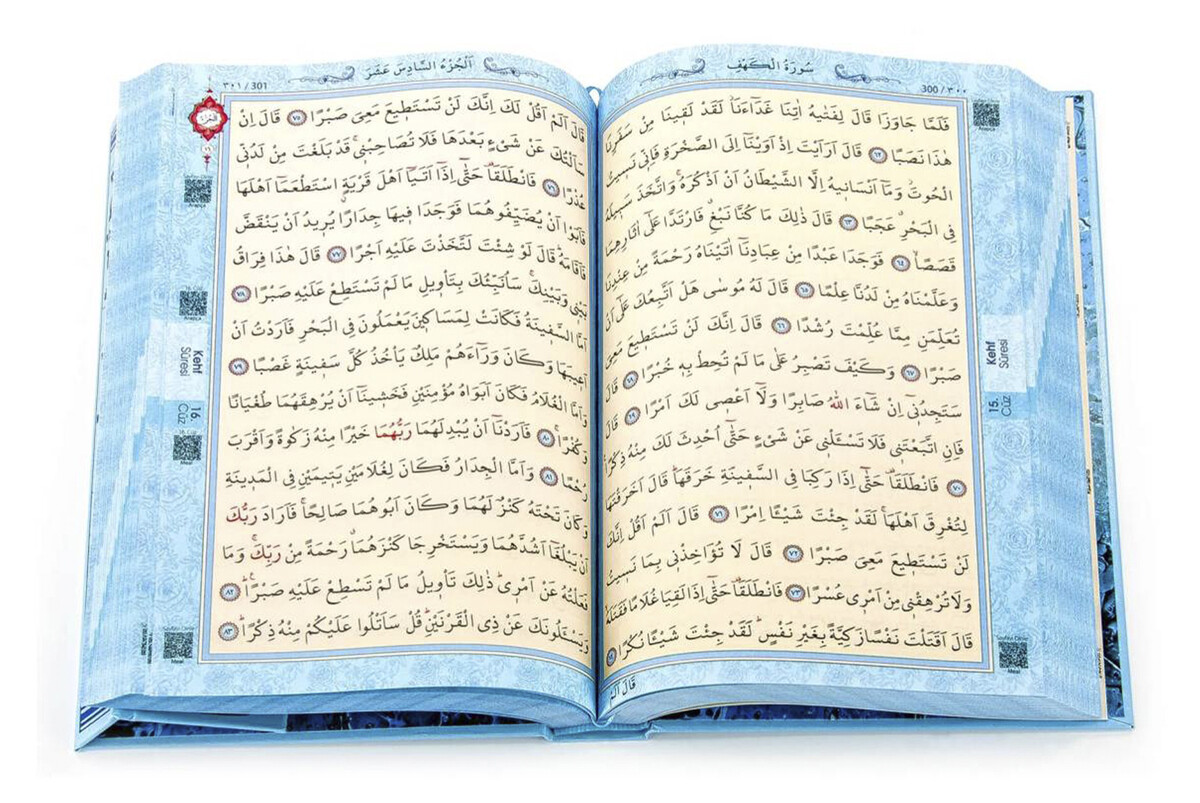 سُورَةُ الْكَهْفِ
300 / ٣٠٠
فَلَمَّا جَاوَزَا قَالَ لِفَتٰيهُ اٰتِنَا غَدَٓاءَنَاۘ لَقَدْ لَقٖينَا مِنْ سَفَرِنَا
هٰذَا نَصَبًا ﴿٦٢﴾ قَالَ اَرَاَيْتَ اِذْ اَوَيْنَٓا اِلَى الصَّخْرَةِ فَاِنّٖى نَسٖيتُ
الْحُوتَۘ وَمَٓا اَنْسَانٖيهُ اِلَّا الشَّيْطَانُ اَنْ اَذْكُرَهُۚ وَاتَّخَذَ سَبٖيلَهُ
فِى الْبَحْرِۗ عَجَبًا ﴿٦٣﴾ قَالَ ذٰلِكَ مَا كُنَّا نَبْغِۗ فَارْتَدَّا عَلٰٓى اٰثَارِهِمَا
قَصَصًاۙ ﴿٦٤﴾ فَوَجَدَا عَبْدًا مِنْ عِبَادِنَٓا اٰتَيْنَاهُ رَحْمَةً مِنْ عِنْدِنَا
وَعَلَّمْنَاهُ مِنْ لَدُنَّا عِلْمًا ﴿٦٥﴾ قَالَ لَهُ مُوسٰى هَلْ اَتَّبِعُكَ عَلٰٓى اَنْ
تُعَلِّمَنِ مِمَّا عُلِّمْتَ رُشْدًا ﴿٦٦﴾ قَالَ اِنَّكَ لَنْ تَسْتَطٖيعَ مَعِىَ
صَبْرًا ﴿٦٧﴾ وَكَيْفَ تَصْبِرُ عَلٰى مَا لَمْ تُحِطْ بِهٖ خُبْرًا ﴿٦٨﴾ قَالَ
سَتَجِدُنٖٓى اِنْ شَٓاءَ اللّٰهُ صَابِرًا وَلَٓا اَعْصٖى لَكَ اَمْرًا ﴿٦٩﴾ قَالَ
فَاِنِ اتَّبَعْتَنٖى فَلَا تَسْـَٔلْنٖى عَنْ شَیْءٍ حَتّٰٓى اُحْدِثَ لَكَ مِنْهُ ذِكْرًا
﴿٧٠﴾ فَانْطَلَقَاۘ حَتّٰٓى اِذَا رَكِبَا فِى السَّفٖينَةِ خَرَقَهَاۜ قَالَ اَخَرَقْتَهَا
لِتُغْرِقَ اَهْلَهَاۚ لَقَدْ جِئْتَ شَيْـًٔا اِمْرًا ﴿٧١﴾ قَالَ اَلَمْ اَقُلْ اِنَّكَ
لَنْ تَسْتَطٖيعَ مَعِىَ صَبْرًا ﴿٧٢﴾ قَالَ لَا تُؤَاخِذْنٖى بِمَا نَسٖيتُ
وَلَا تُرْهِقْنٖى مِنْ اَمْرٖى عُسْرًا ﴿٧٣﴾ فَانْطَلَقَاۘ حَتّٰٓى اِذَا لَقِيَا غُلَامًا فَقَتَلَهُۙ
قَالَ اَقَتَلْتَ نَفْسًا زَكِيَّةً بِغَيْرِ نَفْسٍۜ لَقَدْ جِئْتَ شَيْـًٔا نُكْرًا ﴿٧٤﴾
قَالَ اَلَمْ
Kehf
Sûresi
15.
Cüz
Meal
اَلْجُزْءُ السَّادِسَ عَشَرَ
٣٠١ / 301
قَالَ اَلَمْ اَقُلْ لَكَ اِنَّكَ لَنْ تَسْتَطٖيعَ مَعِىَ صَبْرًا ﴿٧٥﴾ قَالَ اِنْ
سَاَلْتُكَ عَنْ شَیْءٍ بَعْدَهَا فَلَا تُصَاحِبْنٖىۚ قَدْ بَلَغْتَ مِنْ لَدُنّٖى
عُذْرًا ﴿٧٦﴾ فَانْطَلَقَاۘ حَتّٰٓى اِذَٓا اَتَيَٓا اَهْلَ قَرْيَةٍۨ اسْتَطْعَمَٓا اَهْلَهَا
فَاَبَوْا اَنْ يُضَيِّفُوهُمَا فَوَجَدَا فٖيهَا جِدَارًا يُرٖيدُ اَنْ يَنْقَضَّ
فَاَقَامَهُۜ قَالَ لَوْ شِئْتَ لَتَّخَذْتَ عَلَيْهِ اَجْرًا ﴿٧٧﴾ قَالَ هٰذَا فِرَاقُ
بَيْنٖى وَبَيْنِكَۚ سَاُنَبِّئُكَ بِتَاْوٖيلِ مَا لَمْ تَسْتَطِعْ عَلَيْهِ صَبْرًا ﴿٧٨﴾
اَمَّا السَّفٖينَةُ فَكَانَتْ لِمَسَاكٖينَ يَعْمَلُونَ فِى الْبَحْرِ فَاَرَدْتُ اَنْ
اَعٖيبَهَا وَكَانَ وَرَٓاءَهُمْ مَلِكٌ يَاْخُذُ كُلَّ سَفٖينَةٍ غَصْبًا ﴿٧٩﴾
وَاَمَّا الْغُلَامُ فَكَانَ اَبَوَاهُ مُؤْمِنَيْنِ فَخَشٖينَٓا اَنْ يُرْهِقَهُمَا طُغْيَانًا
وَكُفْرًاۚ ﴿٨٠﴾ فَاَرَدْنَٓا اَنْ يُبْدِلَهُمَا رَبُّهُمَا خَيْرًا مِنْهُ زَكٰوةً وَاَقْرَبَ
رُحْمًا ﴿٨١﴾ وَاَمَّا الْجِدَارُ فَكَانَ لِغُلَامَيْنِ يَتٖيمَيْنِ فِى الْمَدٖينَةِ
وَكَانَ تَحْتَهُ كَنْزٌ لَهُمَا وَكَانَ اَبُوهُمَا صَالِحًاۚ فَاَرَادَ رَبُّكَ
اَنْ يَبْلُغَٓا اَشُدَّهُمَا وَيَسْتَخْرِجَا كَنْزَهُمَاۗ رَحْمَةً مِنْ رَبِّكَۚ وَمَا
فَعَلْتُهُ عَنْ اَمْرٖىۜ ذٰلِكَ تَاْوٖيلُ مَا لَمْ تَسْطِعْ عَلَيْهِ صَبْرًاۜ ﴿٨٢﴾
وَيَسْـَٔلُونَكَ عَنْ ذِى الْقَرْنَيْنِۜ قُلْ سَاَتْلُوا عَلَيْكُمْ مِنْهُ ذِكْرًاۜ ﴿٨٣﴾
Kehf
Sûresi
16.
Cüz
Meal
Meal